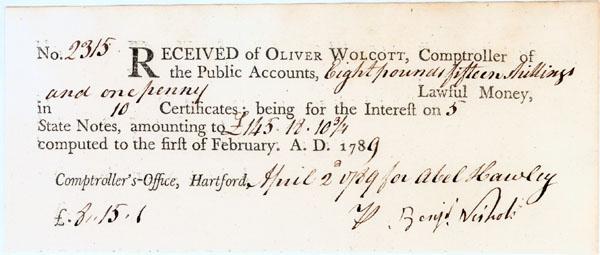 No. 2315. RECEIVED of OLIVER WOLCOTT, Comptroller of
the Public Accounts, Eight pounds fifteen Shillings
and one penny Lawful Money,
in 10 Certificates; being for the Interest on 5
State Notes, amounting to £145. 18. 10¾
computed to the first of February. A. D. 1789
Comptroller's-Office, Hartford, April 2d 1789 for Abel Hawley
£. 8. 15. 1 P Benjn. Nichols